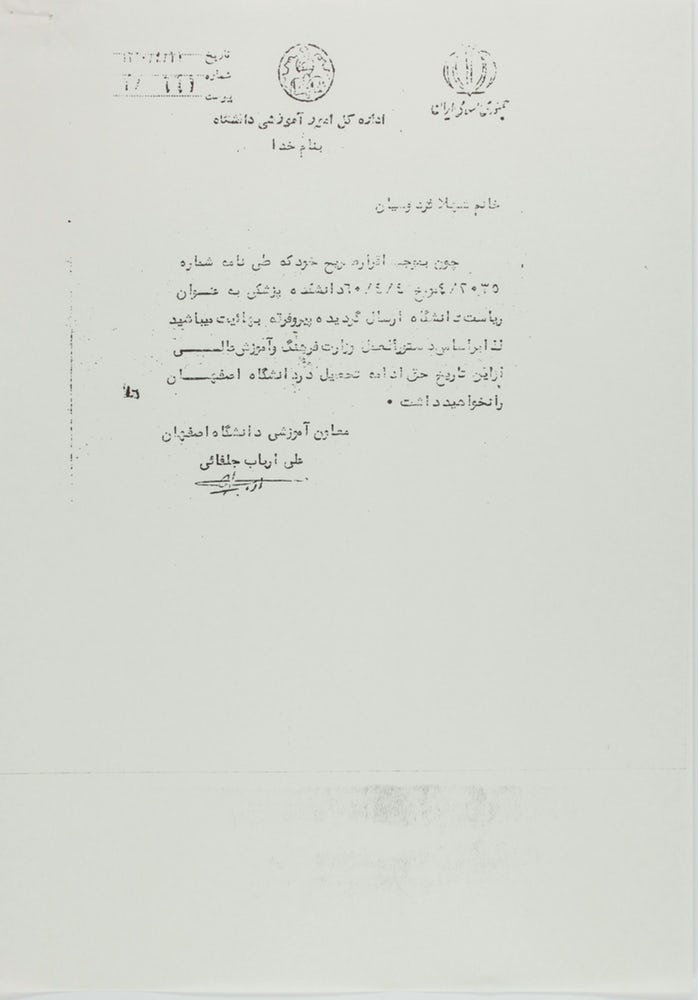 جمهوری اسلامی ایران
تاریخ
شماره
پیوست
اداره کل امور آموزشی دانشگاه
بنام خدا
خانم شهلا فردوسیان
چون بموجب اقرار صریح خود که طی نامه شماره
مورخ ۶۰/۴/۴ دانشکده پزشکی به عنوان
ریاست دانشگاه ارسال گردیده پیرو فرقه بهائیت میباشید
لذا براساس دستورالعمل وزارت فرهنگ و آموزش عالی
از این تاریخ حق ادامه تحصیل در دانشگاه اصفهان
را نخواهید داشت .
معاون آموزشی دانشگاه اصفهان
علی ارباب جلفائی